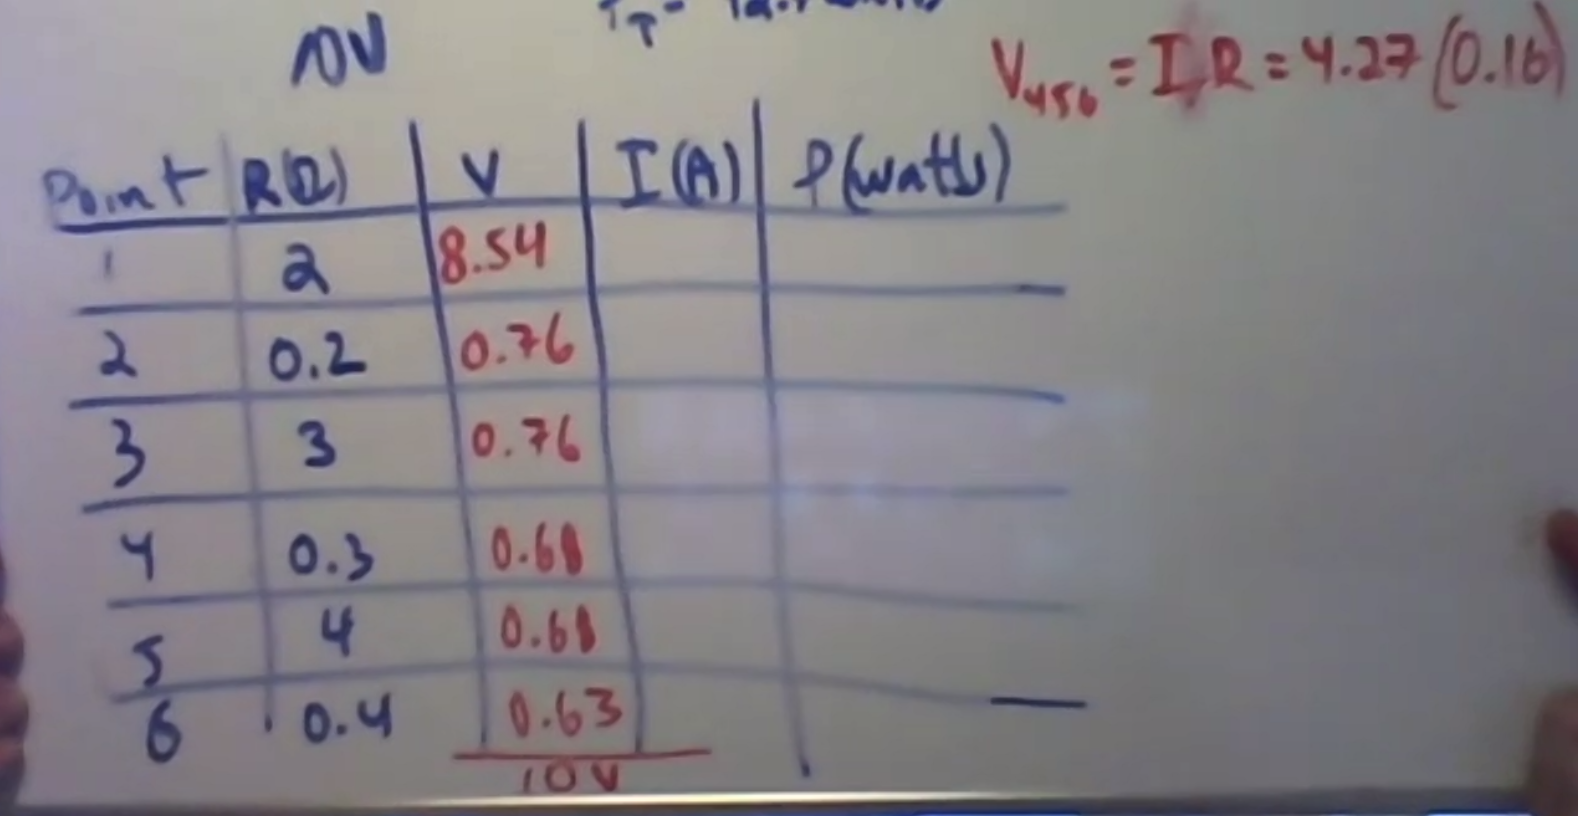 10V
V456 = IR = 4.27 (0.16)
Point R(Ω) V I(A) P(watts)
1 2 8.54
2 0.2 0.76
3 3 0.76
4 0.3 0.68
5 4 0.68
6 0.4 0.63
10V